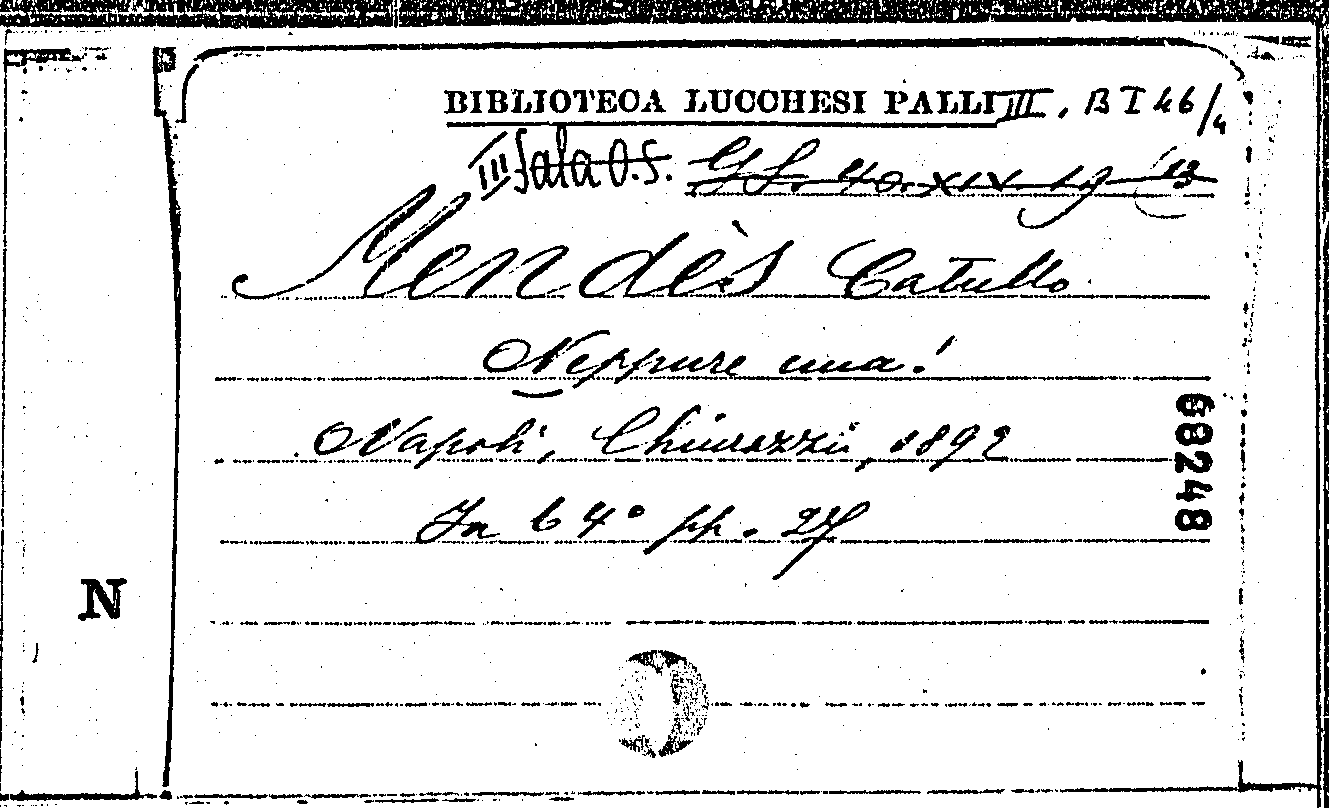 BIBLIOTECA LUCCHESI PALLI III. BT 46/4
III Sala O.S. 40. XIV. 19 (13
Mendès Catullo
Neppure una!
Napoli, Chiurazzi, 1892
In 64° pp. 27
68248
N